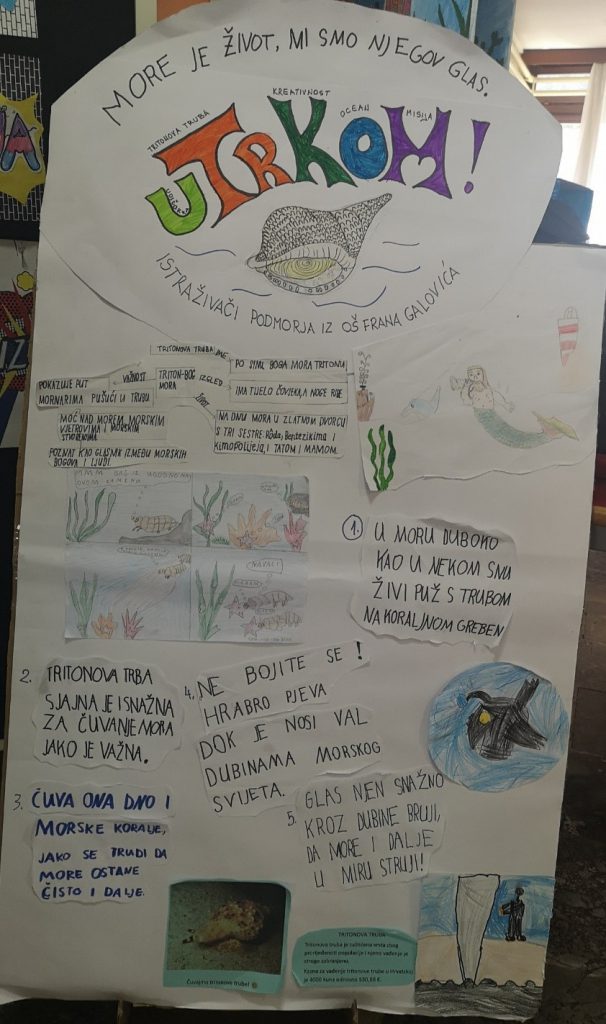 MORE JE ŽIVOT, MI SMO NJEGOV GLAS.
TRITONOVA TRUBA
KREATIVNOST
OCEAN
MISIJA
UTRKOM!
ISTRAŽIVAČI PODMORJA IZ OŠ FRANA GALOVIĆA
TRITONOVA TRUBA IME
PO SINU BOGA MORA TRITONU
TRITON-BOG MORA
IZGLED
IMA TIJELO ČOVJEKA, A NOGE RIBE
VAŽNOST
POKAZUJE PUT
MORNARIMA PUŠUĆI U TRUBU
MOĆ NAD MOREM, MORSKIM
VJETROVIMA I MORSKIM
STVORENJIMA
POZNAT KAO GLASNIK IZMEĐU MORSKIH
BOGOVA I LJUDI.
ŽIVOT
NA DNU MORA U ZLATNOM DVORCU
S TRI SESTRE: Roda, Bentezikima i
Kimopolijeja, I TATOM I MAMOM.
NAVALI
1. U MORU DUBOKO
KAO U NEKOM SNU
ŽIVI PUŽ S TRUBOM
NA KORALJNOM GREBEN
2. TRITONOVA TRBA
SJAJNA JE I SNAŽNA
ZA ČUVANJE MORA
JAKO JE VAŽNA.
3. ČUVA ONA DNO I
MORSKE KORALJE,
JAKO SE TRUDI DA
MORE OSTANE
ČISTO I DALJE.
4. NE BOJITE SE!
HRABRO PJEVA
DOK JE NOSI VAL
DUBINAMA MORSKOG
SVIJETA.
5. GLAS NJEN SNAŽNO
KROZ DUBINE BRUJI,
DA MORE I DALJE
U MIRU STRUJI!
Čuvajmo tritonove trube!
TRITONOVA TRUBA
Tritonova truba je zaštićena vrsta zbog
prorijeđenosti populacije i njeno vađenje je
strogo zabranjeno.
Kazna za vađenje tritonove trube u Hrvatskoj
je 4000 kuna odnosno 530,88 €.